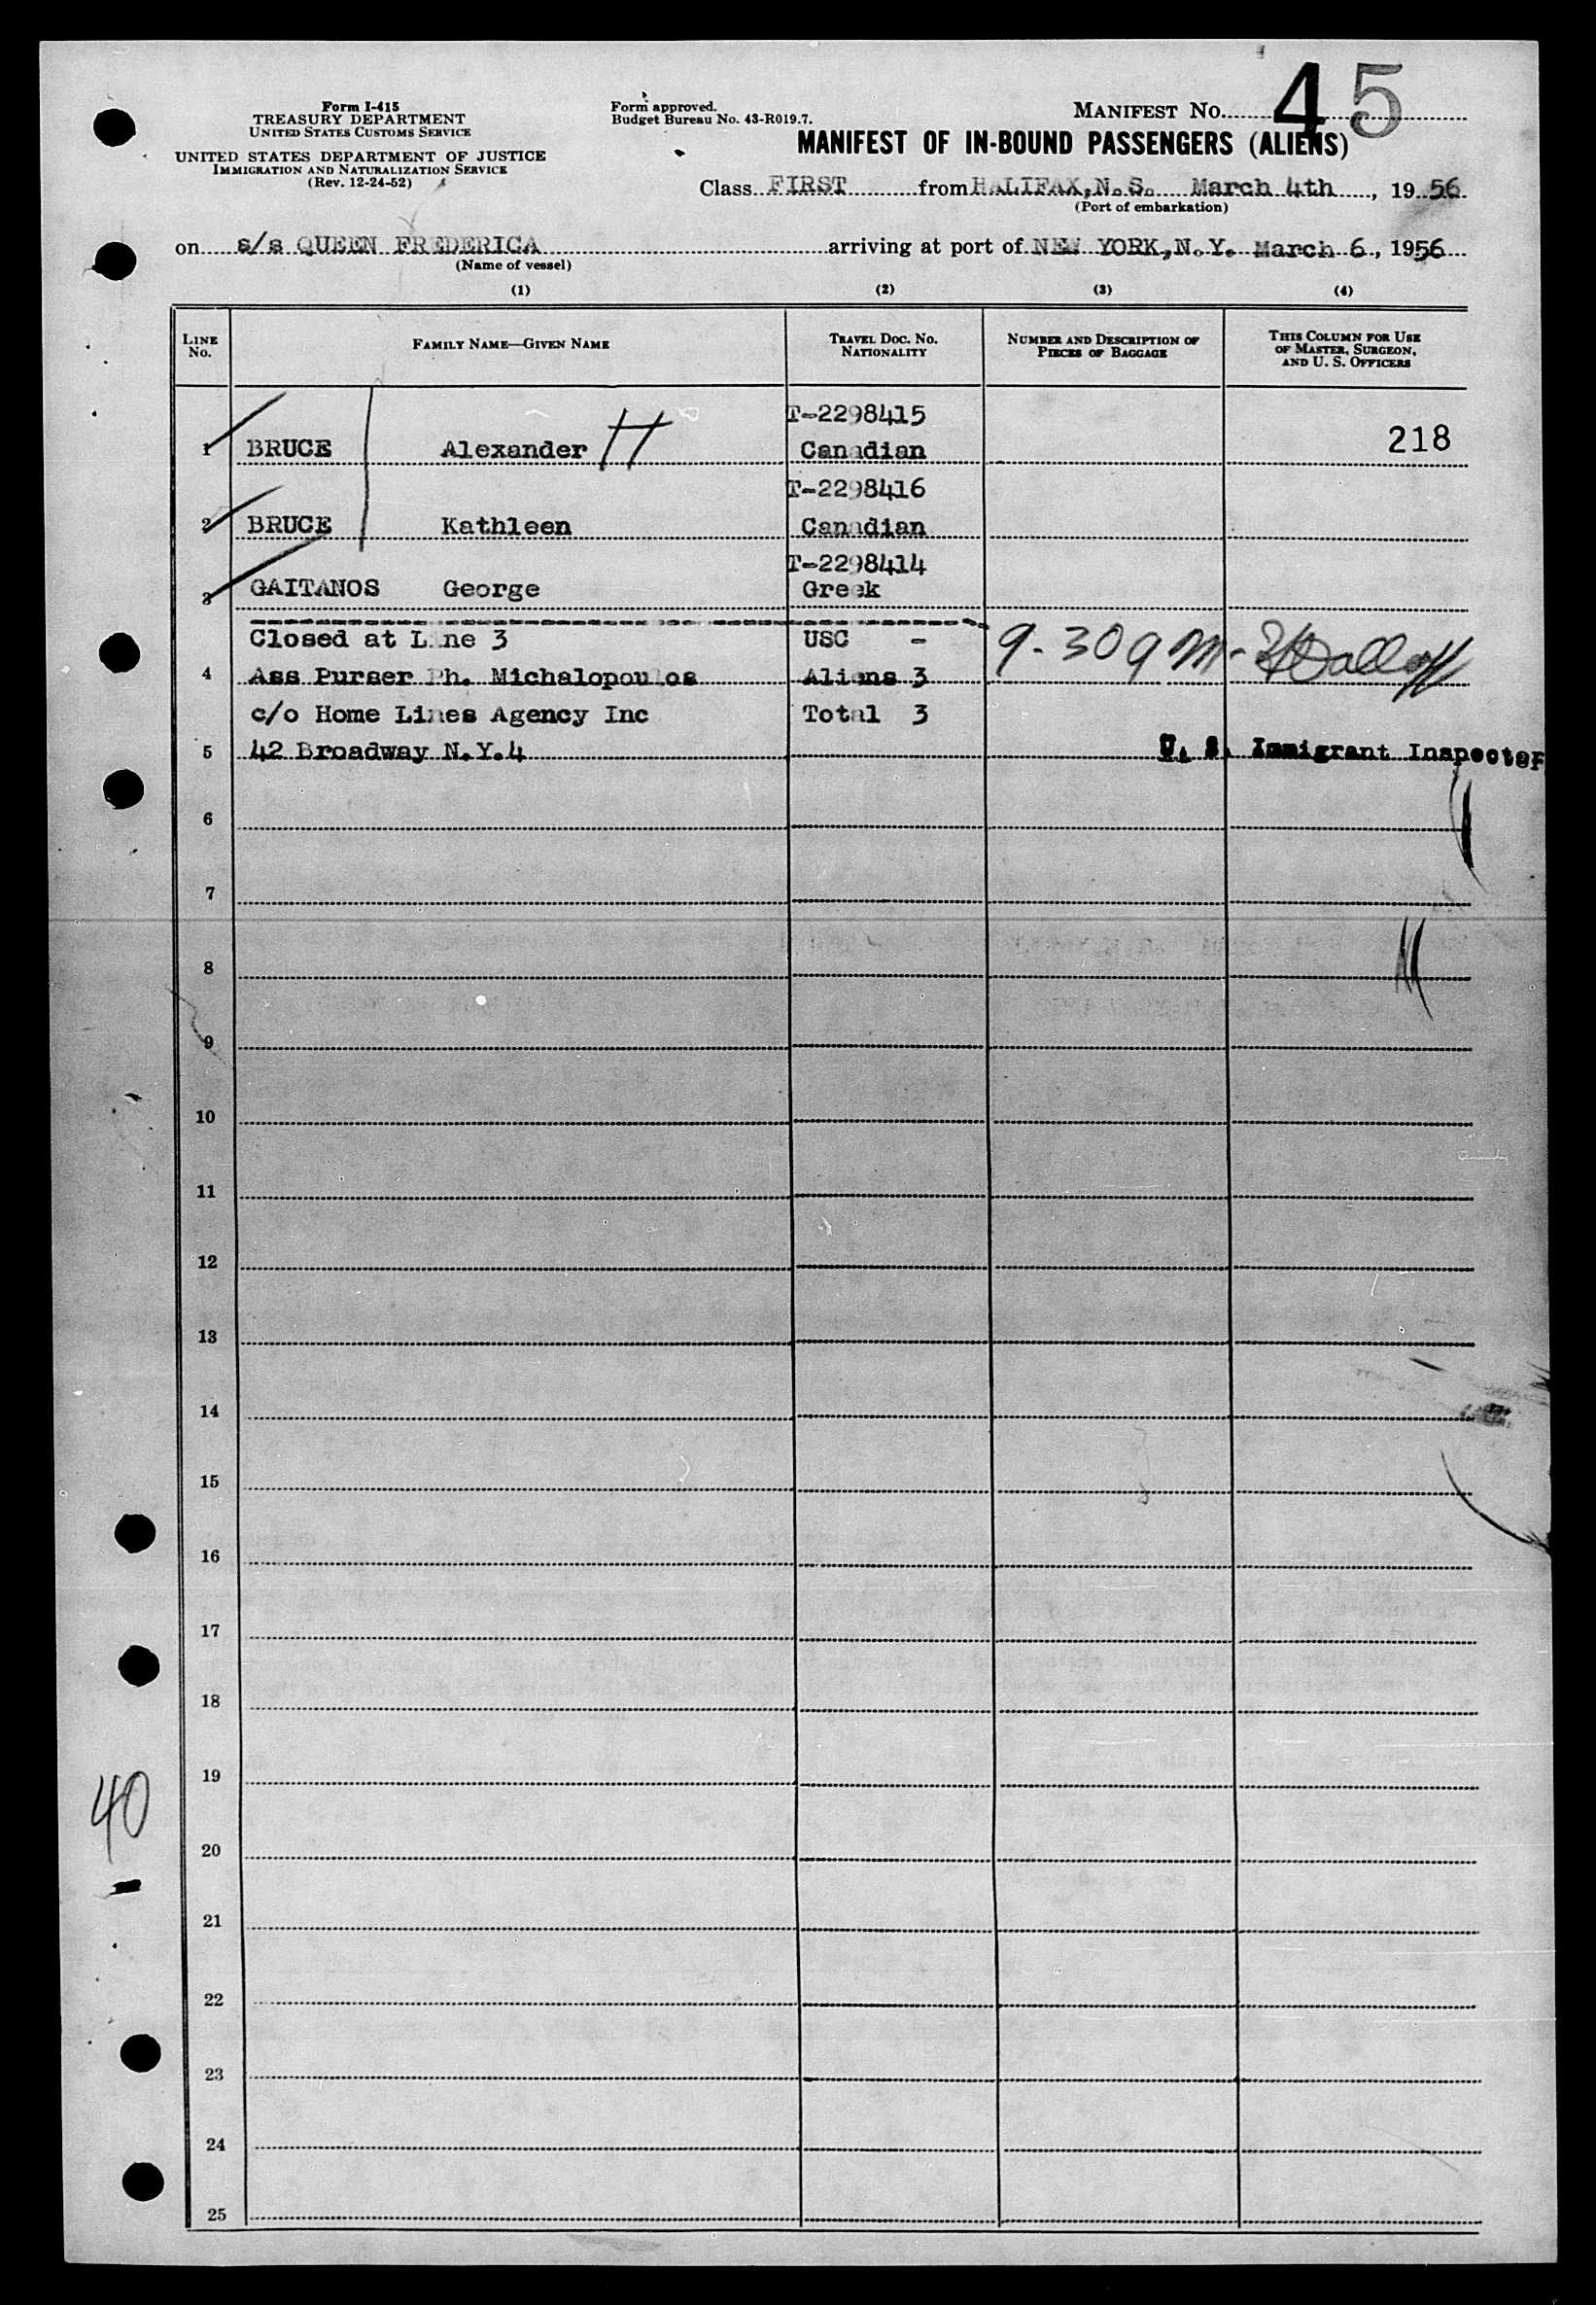 Form I-415
TREASURY DEPARTMENT
UNITED STATES CUSTOMS SERVICE
UNITED STATES DEPARTMENT OF JUSTICE
IMMIGRATION AND NATURALIZATION SERVICE
(Rev. 12-24-52)
Form approved.
Budget Bureau No. 43-R019.7.
MANIFEST NO. 45
MANIFEST OF IN-BOUND PASSENGERS (ALIENS)
Class FIRST from HALIFAX, N.S. March 4th, 1956
(Port of embarkation)
on s/s QUEEN FREDERICA arriving at port of NEW YORK, N.Y. March 6, 1956
(Name of vessel)
(1) (2) (3) (4)
LINE NO.
FAMILY NAME—GIVEN NAME
TRAVEL DOC. NO. NATIONALITY
NUMBER AND DESCRIPTION OF PIECES OF BAGGAGE
THIS COLUMN FOR USE OF MASTER, SURGEON, AND U. S. OFFICERS
T-2298415
1 BRUCE Alexander H Canadian 218
T-2298416
2 BRUCE Kathleen Canadian
T-2298414
3 GAITANOS George Greek
Closed at Line 3 USC -
9.30 am
4 Ass Purser Ph. Michalopoulos Aliens 3
c/o Home Lines Agency Inc Total 3
5 42 Broadway N.Y.4 U. S. Immigrant Inspector
6
7
8
9
10
11
12
13
14
15
16
17
18
19
40
20
21
22
23
24
25